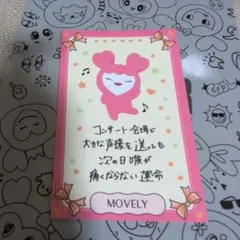 コンサート会場で
大きな声援を送っても
次の日喉が
痛くならない運命
MOVELY